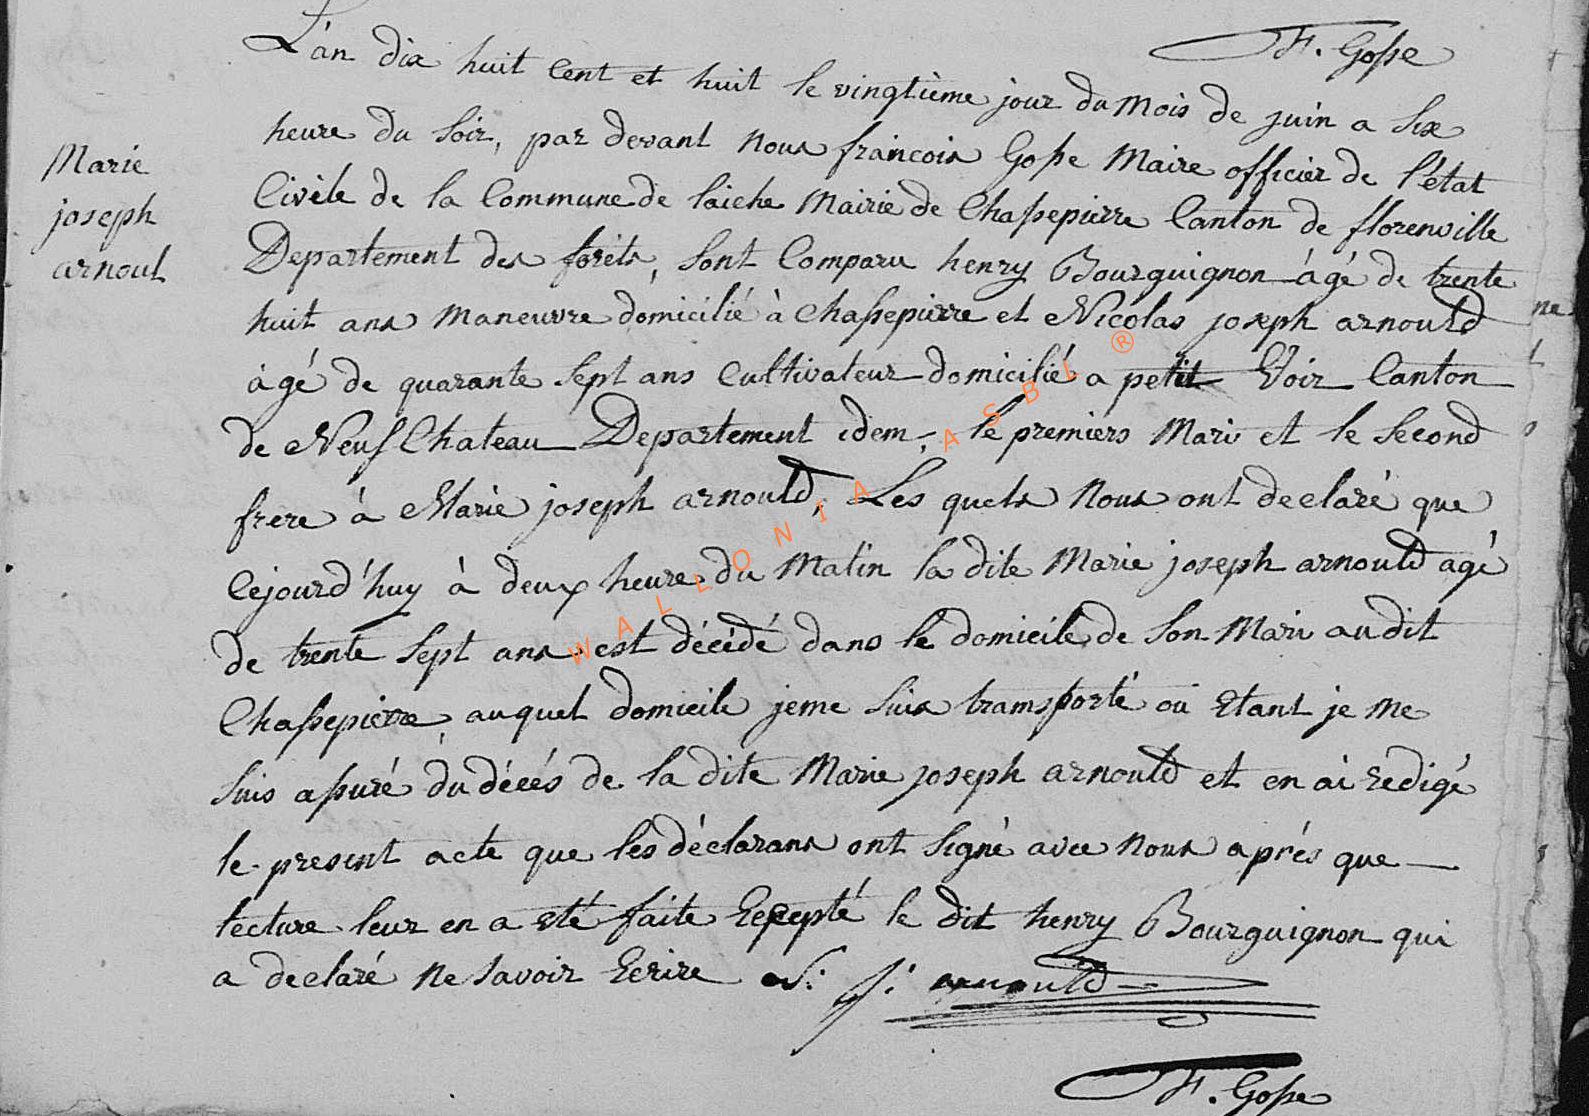 F. Gosse
L'an dix huit cent et huit le vingtième jour du Mois de juin a six
heure du soir, par devant nous francois Gosse Maire officier de l'état
Civile de la Commune de laiche Mairie de Chassepierre Canton de florenville
Departement des forêts, sont Comparu henry Bourguignon âgé de trente
huit ans Maneuvre domicilié à Chassepierre et Nicolas joseph arnould
âgé de quarante sept ans Cultivateur domicilié a petit Voir Canton
de NeufChateau Departement idem, le premiers Mari et le second
frere à Marie joseph arnould, Les quels Nous ont declaré que
Cejourd'huy à deux heure du Matin la dite Marie joseph arnould agé
de trente sept ans est décédé dans le domicile de son Mari audit
Chassepierre, auquel domicile jeme suis transporté ou Etant je me
suis assuré du décés de la dite Marie joseph arnould et en ai redigé
le present acte que les déclarans ont signé avec nous aprés que
lecture leur en a eté faite Ecepté le dit henry Bourguignon qui
a declaré ne savoir Ecrire N: J: arnould
F. Gosse
Marie
joseph
arnoul
ne
WALLONIA ASBL ®